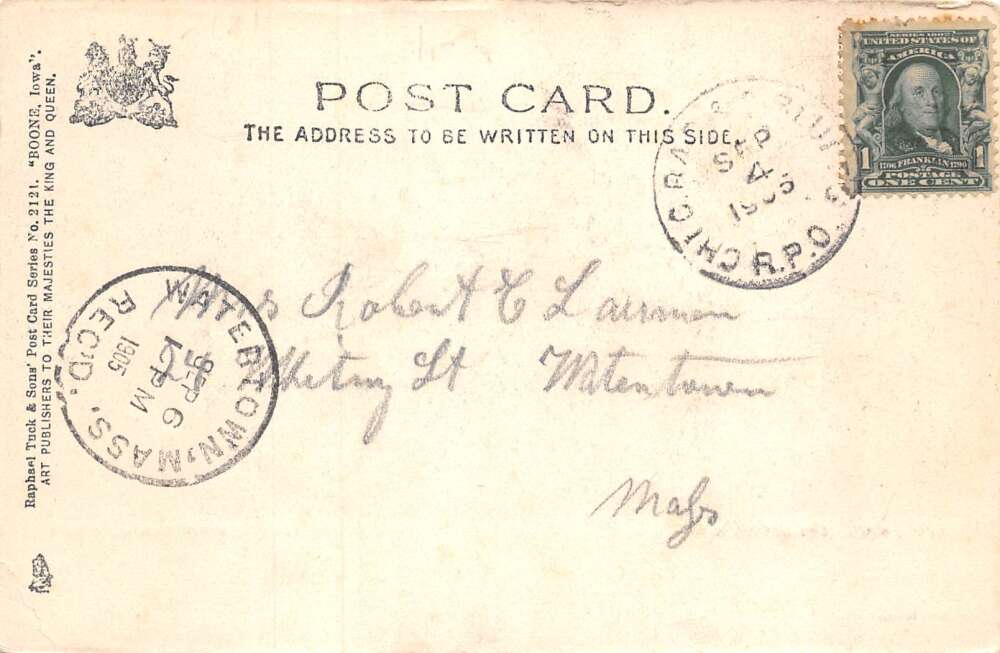 POST CARD.
THE ADDRESS TO BE WRITTEN ON THIS SIDE.
Raphael Tuck & Sons' Post Card Series No. 2121. "BOONE, Iowa".
ART PUBLISHERS TO THEIR MAJESTIES THE KING AND QUEEN.
SERIES 1902
UNITED STATES OF
AMERICA
1706 FRANKLIN 1790
1 POSTAGE 1
ONE CENT
CHIC.
R.P.O.
SEP
Robert E
St Watertown
Mass
WATERTOWN, MASS.
SEP 6
PM
1905
REC'D.